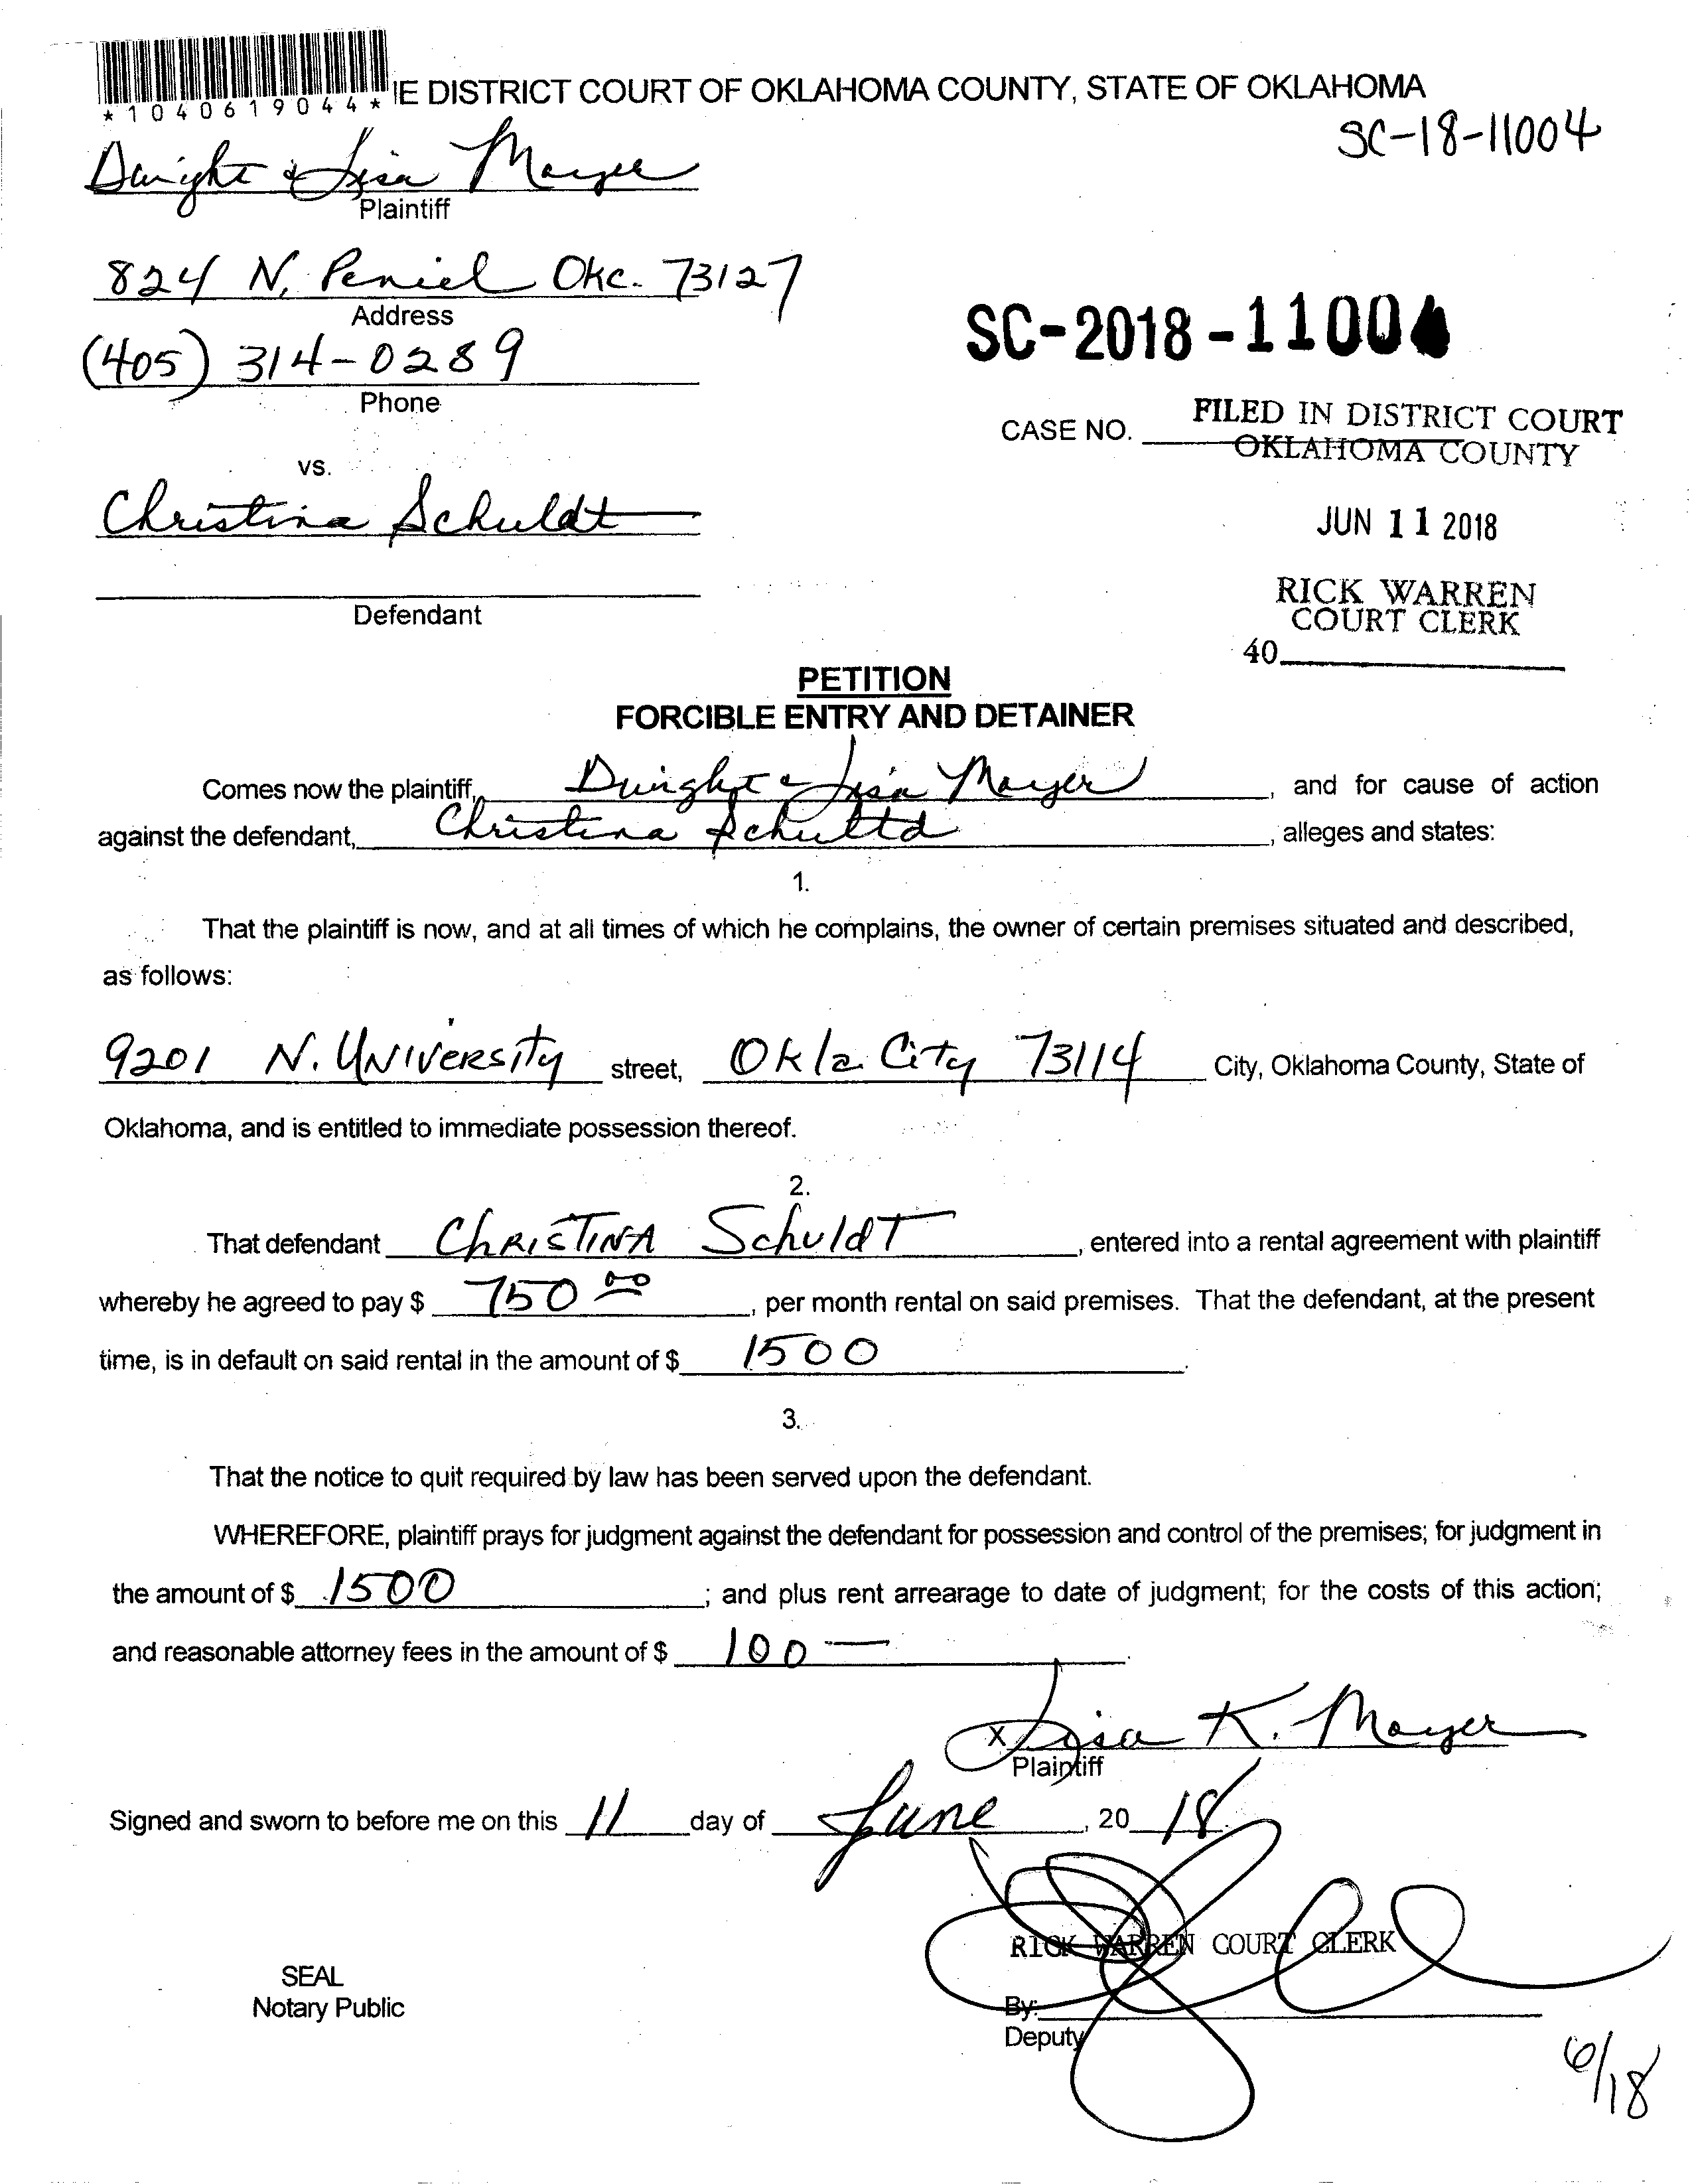 *1040619044* IE DISTRICT COURT OF OKLAHOMA COUNTY, STATE OF OKLAHOMA
SC-18-11004
Dwight & Lisa Mayer
Plaintiff
824 N. Peniel Okc. 73127
Address
SC-2018-11004
(405) 314-0289
Phone
CASE NO.
FILED IN DISTRICT COURT
OKLAHOMA COUNTY
vs.
Christina Schuldt
JUN 11 2018
Defendant
RICK WARREN
COURT CLERK
40
PETITION
FORCIBLE ENTRY AND DETAINER
Comes now the plaintiff, Dwight & Lisa Mayer, and for cause of action
against the defendant, Christina Schultd, alleges and states:
1.
That the plaintiff is now, and at all times of which he complains, the owner of certain premises situated and described,
as follows:
9201 N. University street, Okla City 73114 City, Oklahoma County, State of
Oklahoma, and is entitled to immediate possession thereof.
2.
That defendant Christina Schuldt, entered into a rental agreement with plaintiff
whereby he agreed to pay $ 750 00, per month rental on said premises. That the defendant, at the present
time, is in default on said rental in the amount of $ 1500.
3.
That the notice to quit required by law has been served upon the defendant.
WHEREFORE, plaintiff prays for judgment against the defendant for possession and control of the premises; for judgment in
the amount of $ 1500; and plus rent arrearage to date of judgment; for the costs of this action;
and reasonable attorney fees in the amount of $ 100 —.
X Lisa K. Mayer
Plaintiff
Signed and sworn to before me on this 11 day of June, 20 18.
RICK WARREN COURT CLERK
SEAL
Notary Public
By:
Deputy
6/18